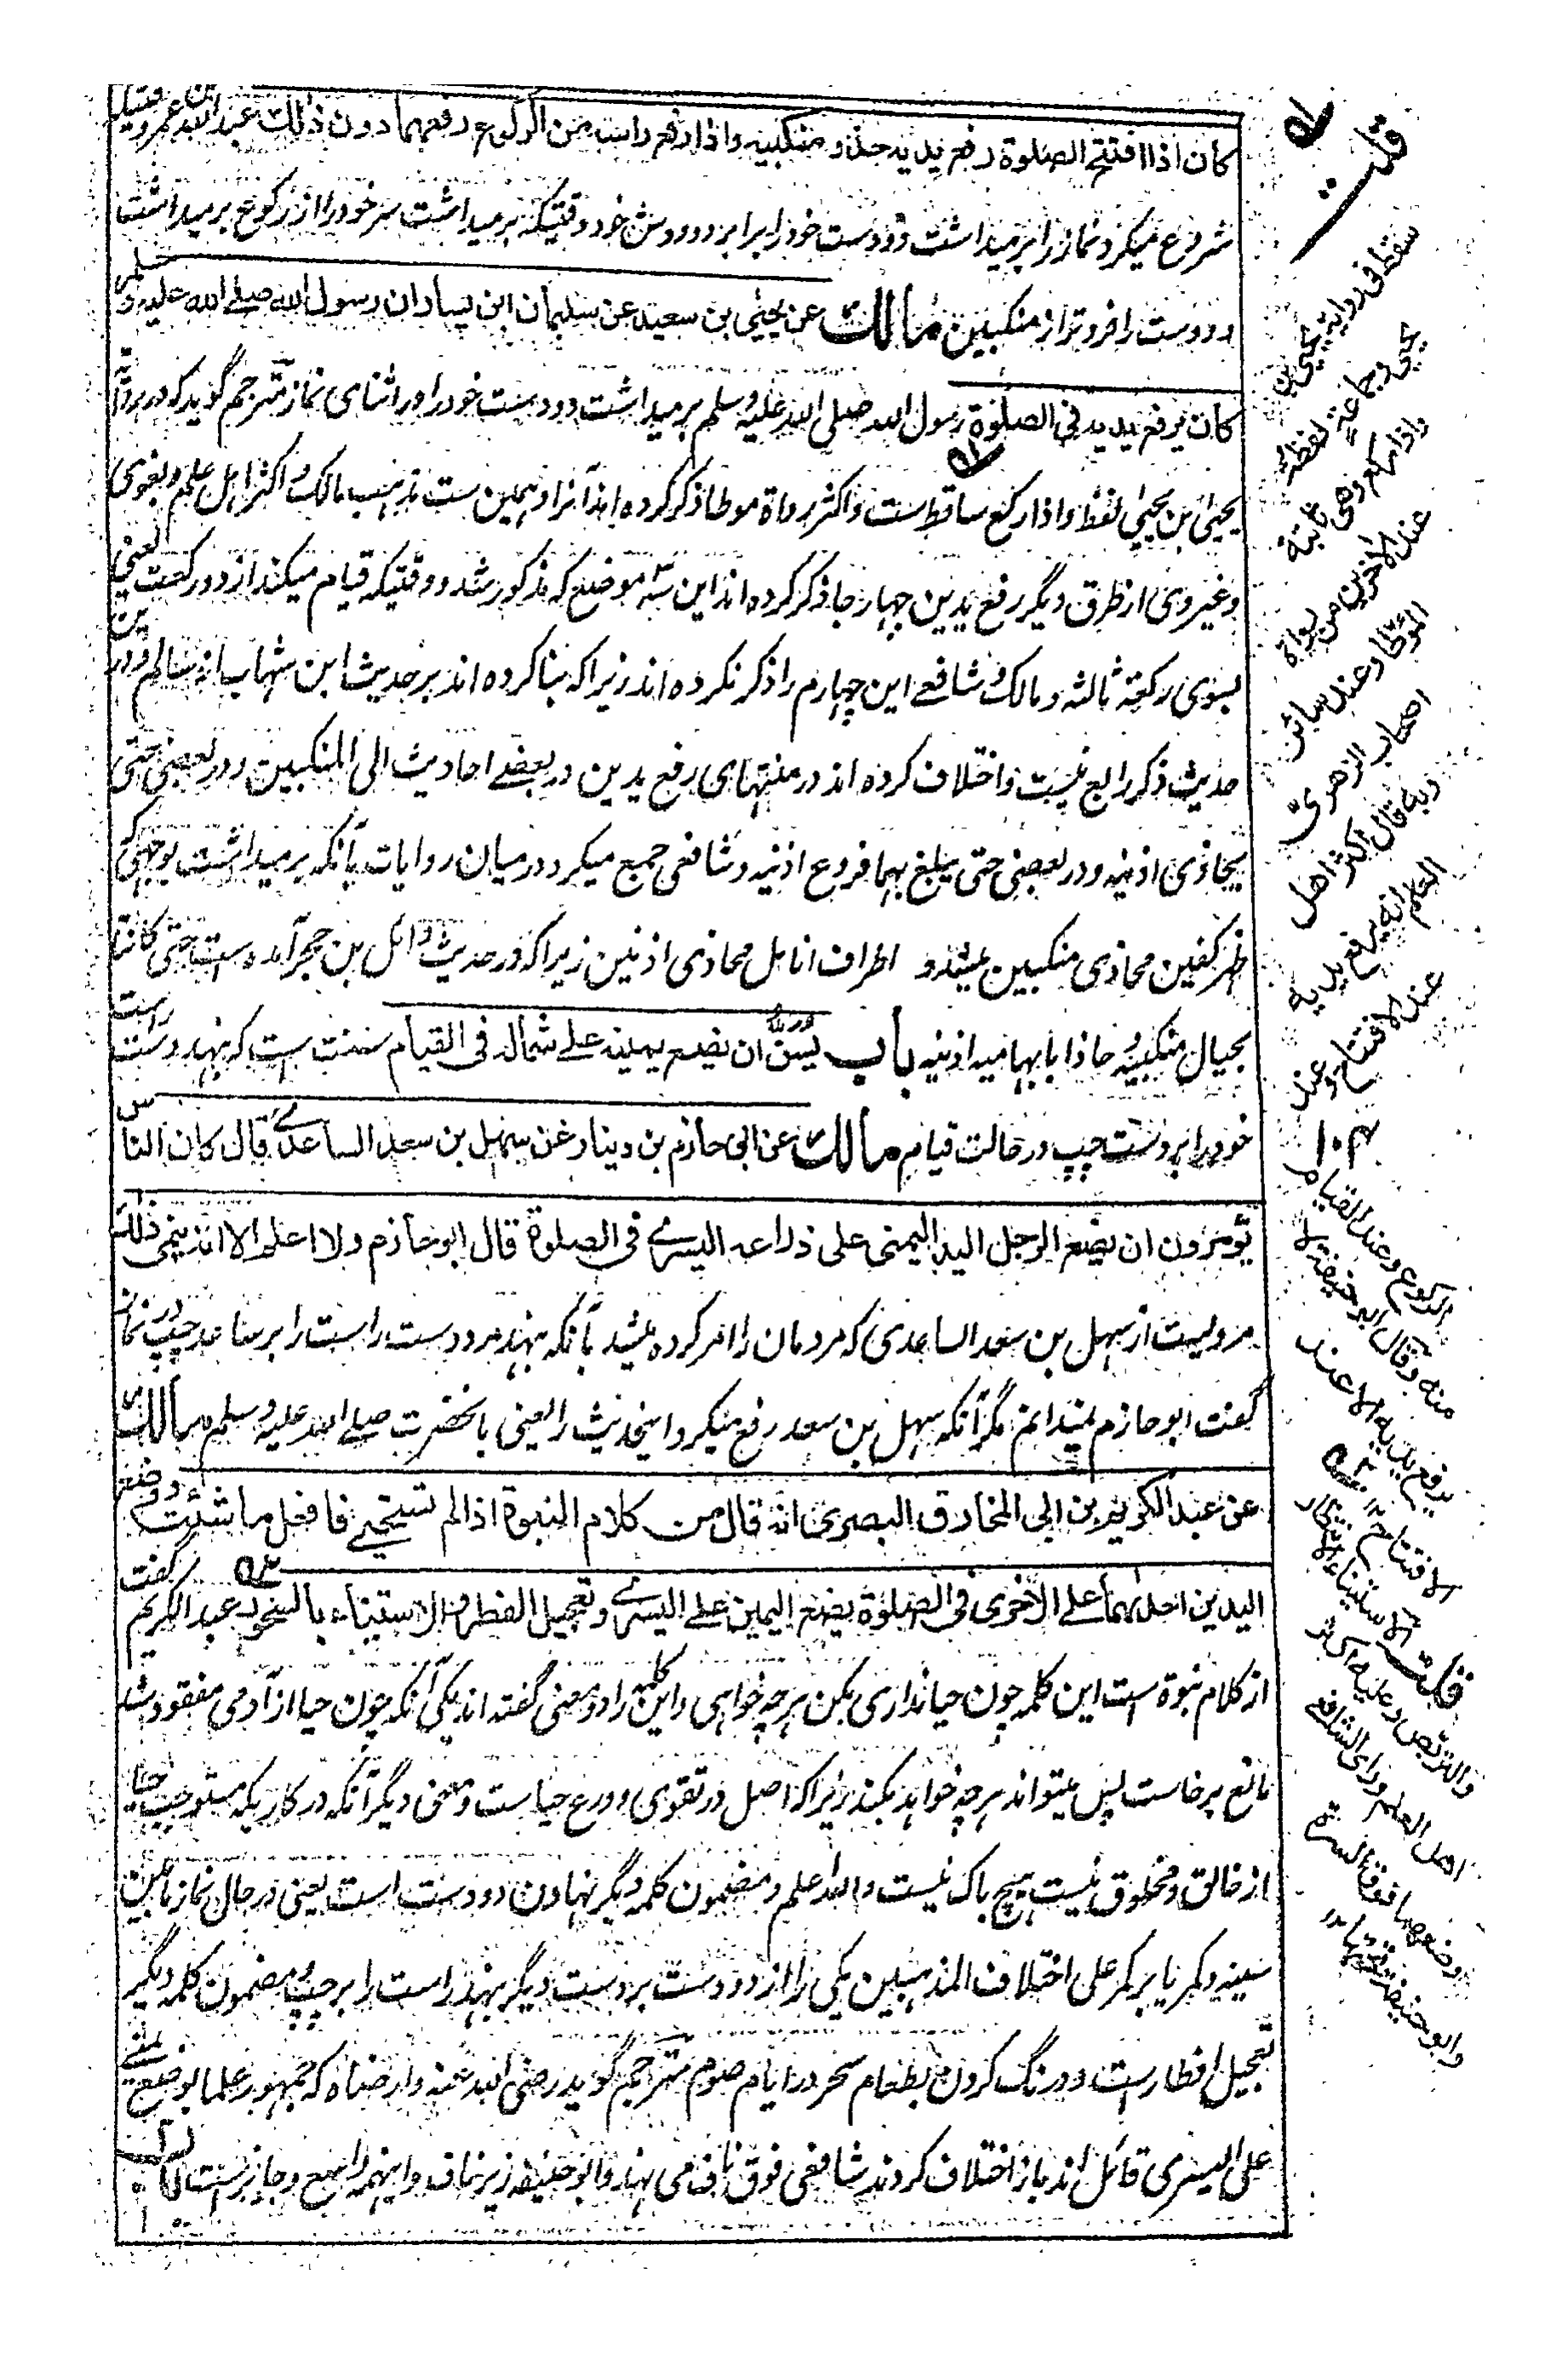 كان اذا افتتح الصلوة رفع يديه حذو منكبيه واذا رفع راسه من الركوع رفعهما دون ذلك عبد الله بن عمر وقتیکه
شروع میکرد نماز را بر میداشت دو دست خود را برابر دو دوش خود و وقتیکه بر میداشت سر خود را از رکوع بر میداشت
دو دست را فروتر از منکبین مالك عن يحيى بن سعيد عن سليمان ابن يسار ان رسول الله صلے الله عليه وسلم
كان يرفع يديه في الصلوة رسول الله صلی الله علیه وسلم بر میداشت دو دست خود را در اثنای نماز مترجم گوید که در روایت
یحیی بن یحیی لفظ واذا رکع ساقط ست و اکثر رواة موطا ذکر کرده اند آنرا و همین ست مذهب مالک و اکثر اهل علم و بغوی
و غیر وی از طرق دیگر رفع یدین چهار جا ذکر کرده اند این سه موضع که مذکور شد و وقتیکه قیام میکند از دو رکعت یعنی
بسوی رکعة ثالثه و مالک و شافعے این چهارم را ذکر نکرده اند زیرا که بنا کرده اند بر حدیث ابن شهاب از سالم و درین
حدیث ذکر رابع نیست و اختلاف کرده اند در منتهای رفع یدین در بعضے احادیث الی المنکبین و در بعضی حتی
یحاذی اذنیه و در بعضی حتی یبلغ بهما فروع اذنیه و شافعی جمع میکرد در میان روایات بآنکه بر میداشت بوجهی که
ظهر کفین محاذی منکبین میشد و اطراف انامل محاذی اذنین زیرا که در حدیث وائل بن حجر آمده ست حتی کانتا
بحیال منکبیه و حاذا بابهامیه اذنیه باب يسن ان يضع يمينه على شماله في القيام سنت ست که بنهد دست راست
خود را بر دست چپ در حالت قیام مالك عن ابي حازم بن دينار عن سهل بن سعد الساعدي قال كان الناس
يؤمرون ان يضع الرجل اليد اليمنى على ذراعه اليسرے في الصلوة قال ابو حازم ولا اعلم الا انه ينمي ذلك
مرویست از سهل بن سعد الساعدی که مردمان را امر کرده میشد بآنکه بنهد مرد دست راست را بر ساعد چپ در نماز
گفت ابو حازم نمیدانم مگر آنکه سهل بن سعد رفع میکرد اینحدیث را یعنی بآنحضرت صلے الله علیه وسلم مالك
عن عبد الكريم بن ابي المخارق البصري انه قال من كلام النبوة اذا لم تستحيے فافعل ما شئت ووضع
اليدين احدهما على الاخرى في الصلوة يضع اليمين على اليسرے وتعجيل الفطر والاستيناء بالسحور عبد الکریم گفت
از کلام نبوة ست این کلمه چون حیا نداری بکن هر چه خواهی و این کلمه را دو معنی گفته اند یکی آنکه چون حیا از آدمی مفقود شد
مانع برخاست پس میتواند هر چه خواهد بکند زیرا که اصل در تقوی و ورع حیاست و معنی دیگر آنکه در کاریکه مستوجب حیا
از خالق و مخلوق نیست هیچ باک نیست والله اعلم و مضمون کلمه دیگر نهادن دو دست است یعنی در حال نماز مابین
سینه و کمر یا بر کمر علی اختلاف المذهبین یکی را از دو دست بر دست دیگر بنهد راست را بر چپ و مضمون کلمه دیگر
تعجیل افطارست و درنگ کردن بطعام سحر در ایام صوم مترجم گوید رضی الله عنه وارضاه که جمهور علما بوضع یمنے
علی الیسری قائل اند باز اختلاف کردند شافعی فوق ناف می نهند و ابو حنیفه زیر ناف و اینهمه واسع و جایز ست
قلت
سقط في رواية يحيى بن
يحيى وجماعة لفظة
واذا ركع وهي ثابتة
عند الاخرين من رواة
المؤطا وعند سائر
اصحاب الزهري
وبه قال اكثر اهل
العلم انه يرفع يديه
عند الافتتاح وعند
الركوع وعند القيام
منه وقال ابو حنيفة لا
يرفع يديه الا عند
الافتتاح
الاستيناء الانتظار
والتربص قلت وعليه اكثر
اهل العلم وراى الشافعي
وضعهما فوق السرة
وابو حنيفة تحتها